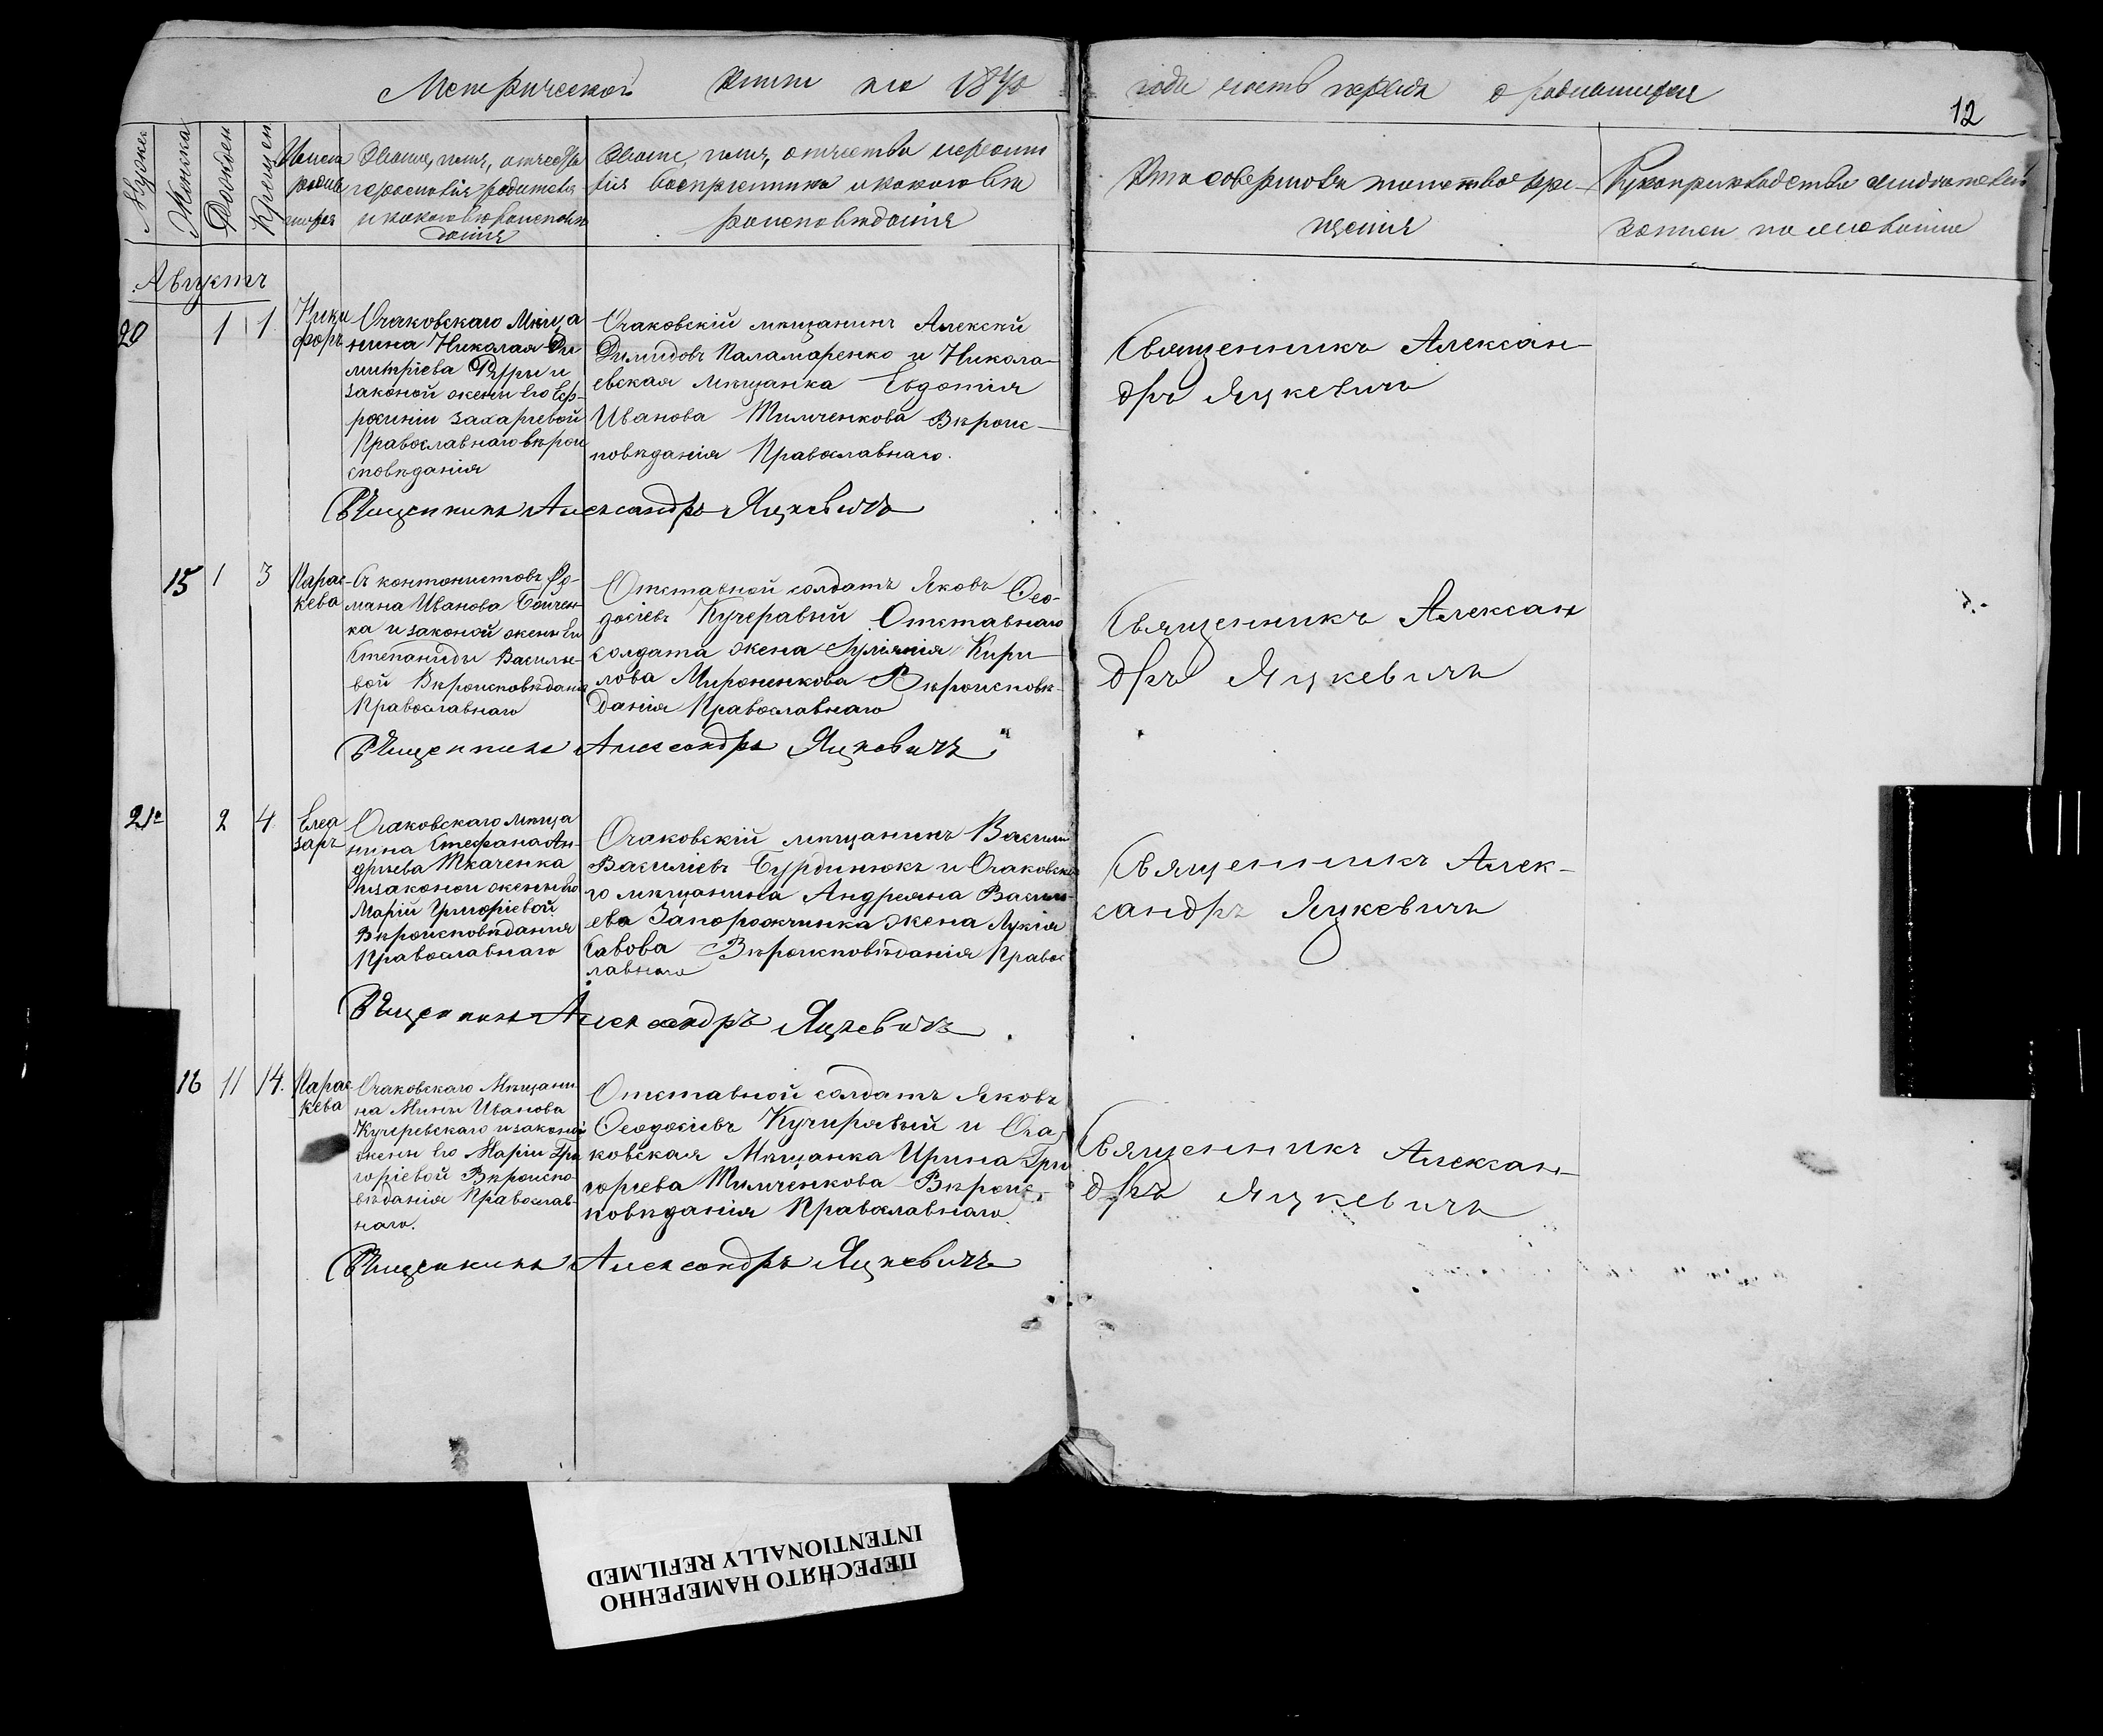 Метрической книги на 1870
года часть первая о родившихся
12
Мужеска
Женска
Рожден
Крещен
Имена родив шихся
Званіе, имя, отчество
и фамилія родителей
и какого вероисповѣ
данія
Званіе, имя, отчество и фами
лія воспріемниковъ и какого вѣ
роисповѣданія
Кто совершалъ таинство кре-
щенія
Рукоприкладство свидетелей
записи по желанію
Августъ
20 1 1 Ники
форъ
Очаковскаго Мѣща
нина Николая Ди
митріева Рури и
законой жены его Ев-
рожиніи Захаріевой
Православнаго вѣрои
сповѣданія
Очаковскій мѣщанинъ Алексѣй
Димидовъ Паламаренко и Никола-
евская Мѣщанка Евдотія
Иванова Тимченкова Вѣроис-
повѣданія Православнаго.
Священникъ Александръ Яцкевичъ
Священникъ Алексан-
дръ Яцкевичъ
15 1 3 Парас-
кева
Съ контонистовъ Ро-
мана Иванова Бойчен-
ка и законой жены его
Степаниды Василье-
вой Вѣроисповѣданія
Православнаго
Отставной солдатъ Яковъ Ѳео-
досіевъ Кучеравый Отставнаго
солдата жена Іуліянія Кири-
лова Мироненкова Вѣроисповѣ-
данія Православнаго
Священникъ Александръ Яцкевичъ
Священникъ Алексан
дръ Яцкевичъ
21 2 4 Елеа
заръ
Очаковскаго мѣща
нина Стефана Ан-
дріева Ткаченка
и законой жены его
Маріи Григоріевой
Вѣроисповѣданія
Православнаго
Очаковскій мѣщанинъ Василій
Василіевъ Бурдинюкъ и Очаковска
го мѣщанина Андреяна Васили-
ева Запорожчинка жена Лукія
Савова Вѣроисповѣданія Правос
лавнаго
Священникъ Александръ Яцкевичъ
Священникъ Алек-
сандръ Яцкевичъ
16 11 14. Парас-
кева
Очаковскаго Мѣщани-
на Мины Иванова
Кучеревскаго и законой
жены его Маріи Гри
горіевой Вѣроиспо-
вѣданія Православ-
наго.
Отставной солдатъ Яковъ
Ѳеодосіевъ Кучирявый и Оча-
ковская Мѣщанка Ирина Гри
горіева Тимченкова Вѣроис-
повѣданія Православнаго.
Священникъ Александръ Яцкевичъ
Священникъ Алексан-
дръ Яцкевичъ
ПЕРЕСНЯТО НАМЕРЕННО
INTENTIONALLY REFILMED